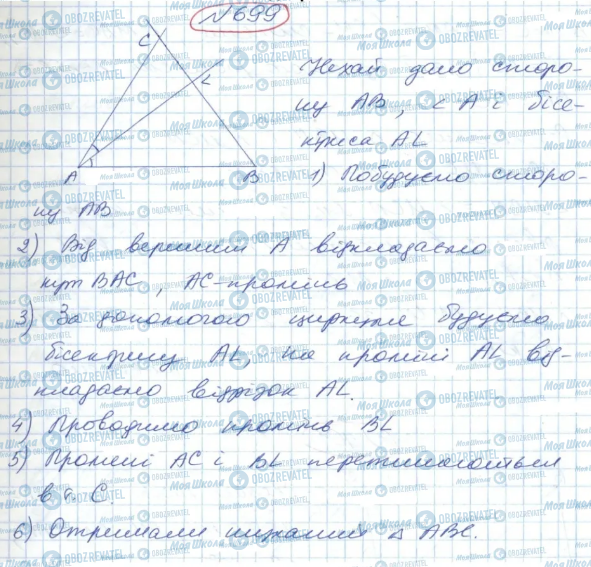 №699
C
L
A B
Нехай дано сторо-
ну AB, ∠A і бісе-
ктриса AL
1) Побудуємо сторо-
ну AB
2) Від вершини A відкладаємо
кут BAC, AC-промінь
3) За допомогою циркуля будуємо
бісектрису AL, на промені AL від-
кладаємо відрізок AL.
4) Проводимо промінь BL
5) Промені AC і BL перетинаються
в т. C
6) Отримали шуканий △ABC.